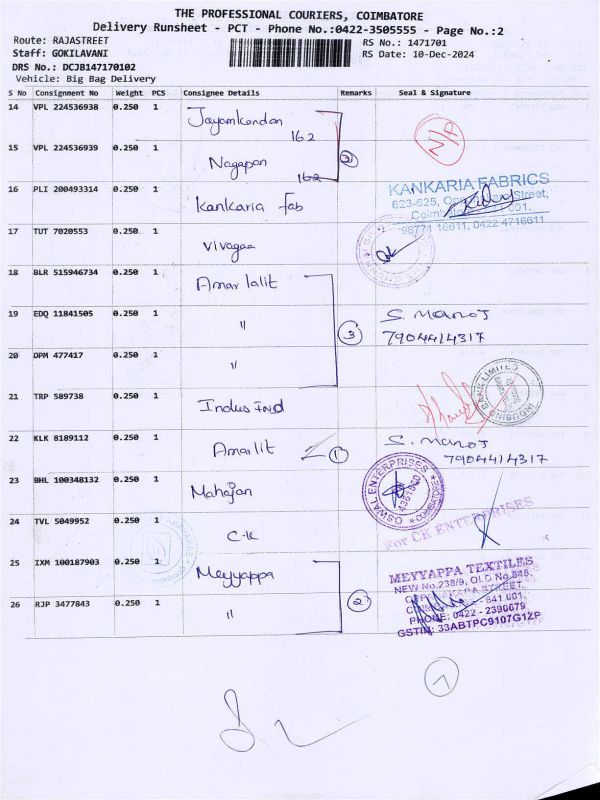 THE PROFESSIONAL COURIERS, COIMBATORE
Delivery Runsheet - PCT - Phone No.:0422-3505555 - Page No.:2
Route: RAJASTREET RS No.: 1471701
Staff: GOKILAVANI RS Date: 10-Dec-2024
DRS No.: DCJB147170102
Vehicle: Big Bag Delivery
S No Consignment No Weight PCS Consignee Details Remarks Seal & Signature
14 VPL 224536938 0.250 1 Jayamkondan
162
N/P
15 VPL 224536939 0.250 1 Nagapan
162
2
16 PLI 200493314 0.250 1 Kankaria Fab
KANKARIA FABRICS
623-625, Street,
98771 16611, 0422 4716611
17 TUT 7020553 0.250 1 Vivagaa
18 BLR 515946734 0.250 1 Amar lalit
19 EDQ 11841505 0.250 1 " 3 S. Manoj
7904414317
20 DPM 477417 0.250 1 "
21 TRP 589738 0.250 1 Indus Ind
INDUSIND BANK LIMITED
22 KLK 8189112 0.250 1 Amarlit 1 S. Manoj
7904414317
23 BHL 100348132 0.250 1 Mahajan
OSWAL ENTERPRISES
24 TVL 5049952 0.250 1 C-K
For CK ENTERPRISES
25 IXM 100187903 0.250 1 Meyyappa
MEYYAPPA TEXTILES
NEW No.238/9, OLD No.546,
PHONE: 0422 - 2390679
GSTIN: 33ABTPC9107G1ZP
26 RJP 3477843 0.250 1 " 2
1